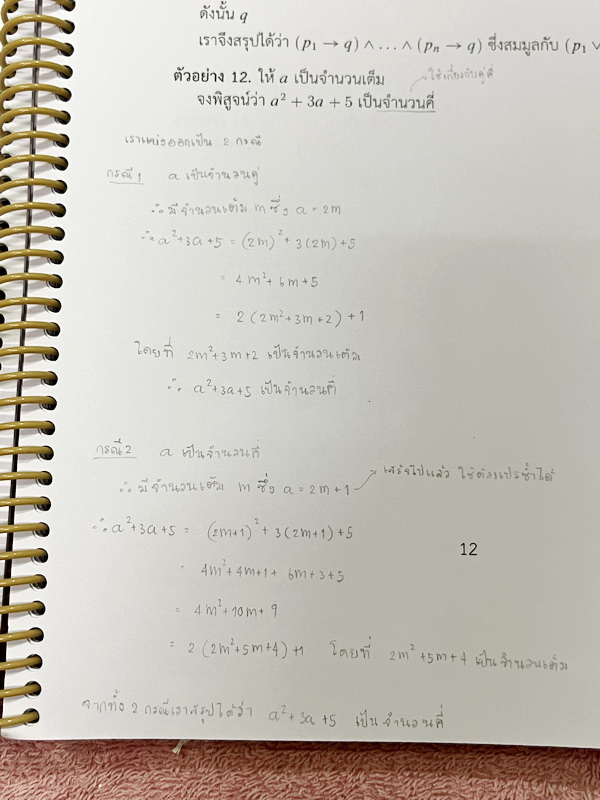 ดังนั้น q
เราจึงสรุปได้ว่า (p₁ → q) ∧ … ∧ (pₙ → q) ซึ่งสมมูลกับ (p₁ ∨
ตัวอย่าง 12. ให้ a เป็นจำนวนเต็ม
ใช้เกี่ยวกับคู่คี่
จงพิสูจน์ว่า a² + 3a + 5 เป็นจำนวนคี่
เราแบ่งออกเป็น 2 กรณี
กรณี 1 a เป็นจำนวนคู่
∴ มีจำนวนเต็ม m ซึ่ง a = 2m
∴ a²+3a+5 = (2m)² + 3(2m)+5
= 4m²+6m+5
= 2(2m²+3m+2)+1
โดยที่ 2m²+3m+2 เป็นจำนวนเต็ม
∴ a²+3a+5 เป็นจำนวนคี่
กรณี 2 a เป็นจำนวนคี่
∴ มีจำนวนเต็ม m ซึ่ง a = 2m+1 → เสร็จไปแล้ว ใช้ตัวแปรซ้ำได้
∴ a²+3a+5 = (2m+1)² + 3(2m+1)+5
12
4m²+4m+1+ 6m+3+5
= 4m²+10m+9
= 2(2m²+5m+4)+1 โดยที่ 2m²+5m+4 เป็นจำนวนเต็ม
จากทั้ง 2 กรณีเราสรุปได้ว่า a²+3a+5 เป็นจำนวนคี่